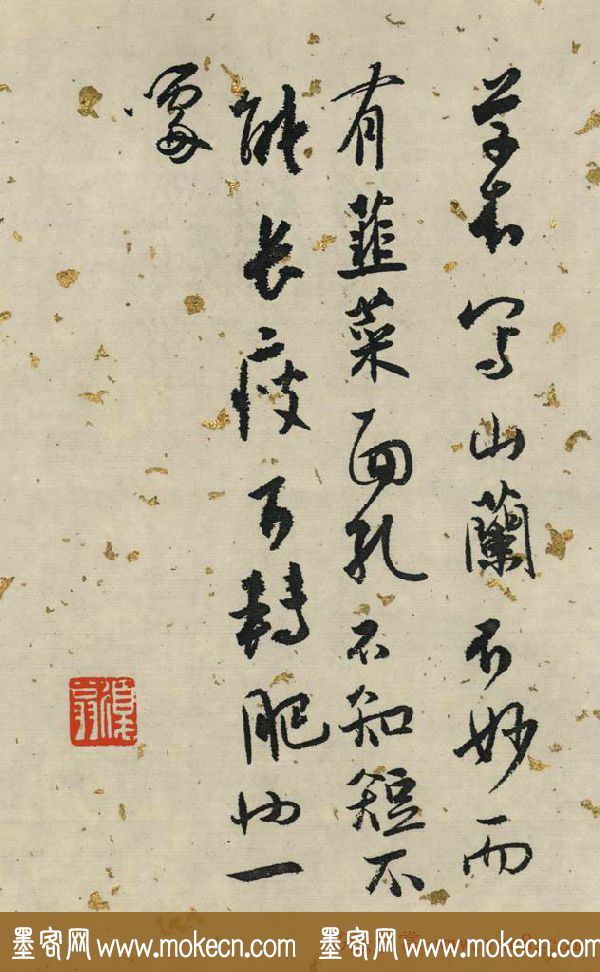 草衣寫山蘭不妙而
有韮菜面孔不知短不
能長瘦不轉肥一
噱
墨客网www.mokecn.com 墨客网www.mokecn.com